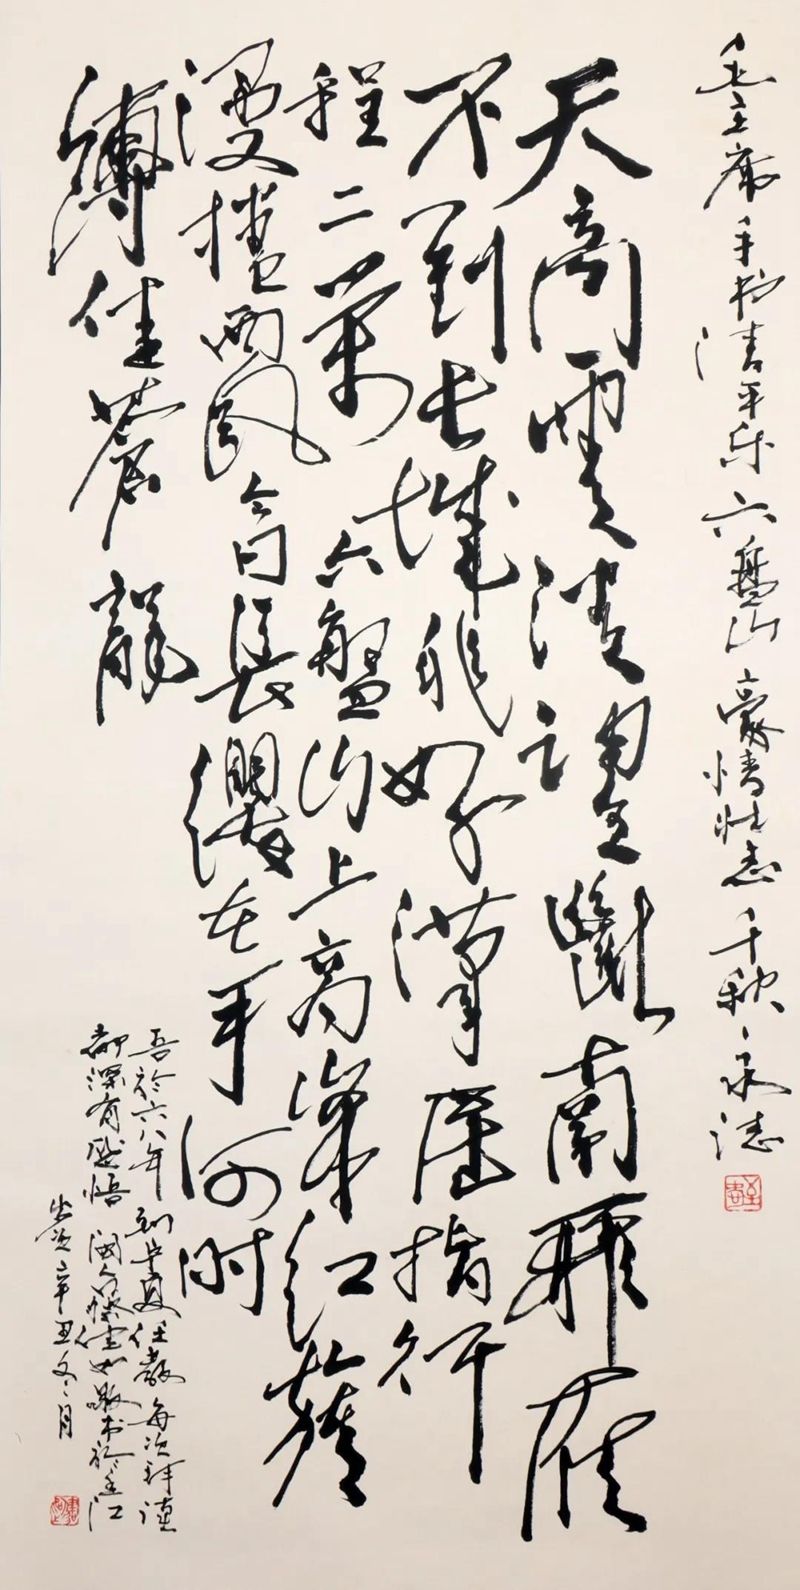 毛主席手书清平乐六盘山豪情壮志千秋永志
天高云淡望断南飞雁
不到长城非好汉屈指行
程二万六盘山上高峰红旗
漫卷西风今日长缨在手何时
缚住苍龙
吾於六八年到宁夏任教每次拜读
都深有感悟
岁次辛丑冬月